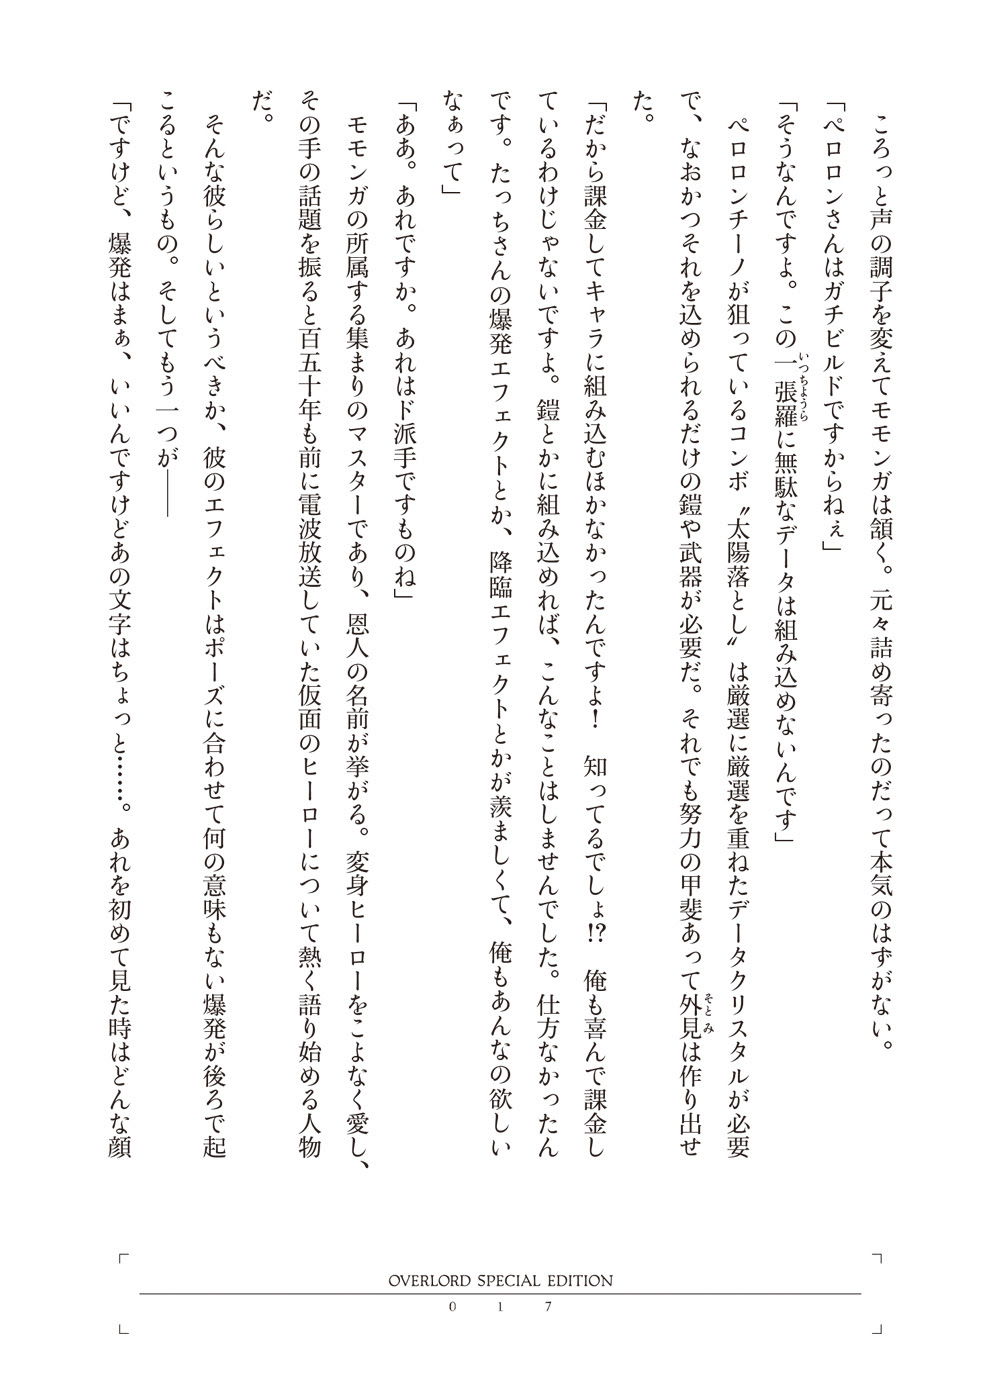 ころっと声の調子を変えてモモンガは頷く。元々詰め寄ったのだって本気のはずがない。
「ペロロンさんはガチビルドですからねぇ」
「そうなんですよ。この一張羅に無駄なデータは組み込めないんです」
　ペロロンチーノが狙っているコンボ〝太陽落とし〟は厳選に厳選を重ねたデータクリスタルが必要
で、なおかつそれを込められるだけの鎧や武器が必要だ。それでも努力の甲斐あって外見は作り出せ
た。
「だから課金してキャラに組み込むほかなかったんですよ！　知ってるでしょ!?　俺も喜んで課金し
ているわけじゃないですよ。鎧とかに組み込めれば、こんなことはしませんでした。仕方なかったん
です。たっちさんの爆発エフェクトとか、降臨エフェクトとかが羨ましくて、俺もあんなの欲しい
なぁって」
「ああ。あれですか。あれはド派手ですものね」
　モモンガの所属する集まりのマスターであり、恩人の名前が挙がる。変身ヒーローをこよなく愛し、
その手の話題を振ると百五十年も前に電波放送していた仮面のヒーローについて熱く語り始める人物
だ。
　そんな彼らしいというべきか、彼のエフェクトはポーズに合わせて何の意味もない爆発が後ろで起
こるというもの。そしてもう一つが――
「ですけど、爆発はまぁ、いいんですけどあの文字はちょっと……。あれを初めて見た時はどんな顔
OVERLORD SPECIAL EDITION
0 1 7